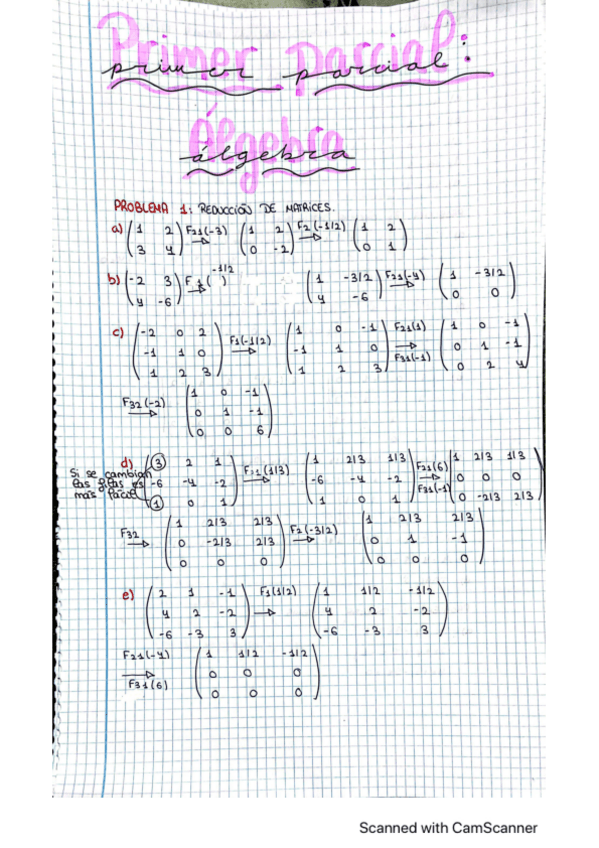 Primer parcial:
primer parcial
Álgebra
álgebra
PROBLEMA 1: REDUCCIÓN DE MATRICES.
a) (1 2 / 3 4) F21(-3) → (1 2 / 0 -2) F2(-1/2) → (1 2 / 0 1)
b) (-2 3 / 4 -6) F1(-1/2) → (1 -3/2 / 4 -6) F21(-4) → (1 -3/2 / 0 0)
c) (-2 0 2 / -1 1 0 / 1 2 3) F1(-1/2) → (1 0 -1 / -1 1 0 / 1 2 3) F21(1) → F31(-1) (1 0 -1 / 0 1 -1 / 0 2 4)
F32(-2) → (1 0 -1 / 0 1 -1 / 0 0 6)
Si se cambian las filas es más fácil
d) (3 2 1 / -6 -4 -2 / 1 0 1) F1(1/3) → (1 2/3 1/3 / -6 -4 -2 / 1 0 1) F21(6) → F31(-1) (1 2/3 1/3 / 0 0 0 / 0 -2/3 2/3)
F32 → (1 2/3 2/3 / 0 -2/3 2/3 / 0 0 0) F2(-3/2) → (1 2/3 2/3 / 0 1 -1 / 0 0 0)
e) (2 1 -1 / 4 2 -2 / -6 -3 3) F1(1/2) → (1 1/2 -1/2 / 4 2 -2 / -6 -3 3)
F21(-4) → F31(6) (1 1/2 -1/2 / 0 0 0 / 0 0 0)
Scanned with CamScanner